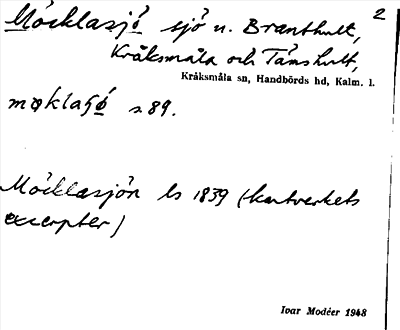 Möcklasjö sjö u. Branthult, 2
Kråksmåla och Tåmshult,
Kråksmåla sn, Handbörds hd, Kalm. l.
s. 89.
Möcklasjön ls 1839 (kartverkets
excerpter)
Ivar Modéer 1948